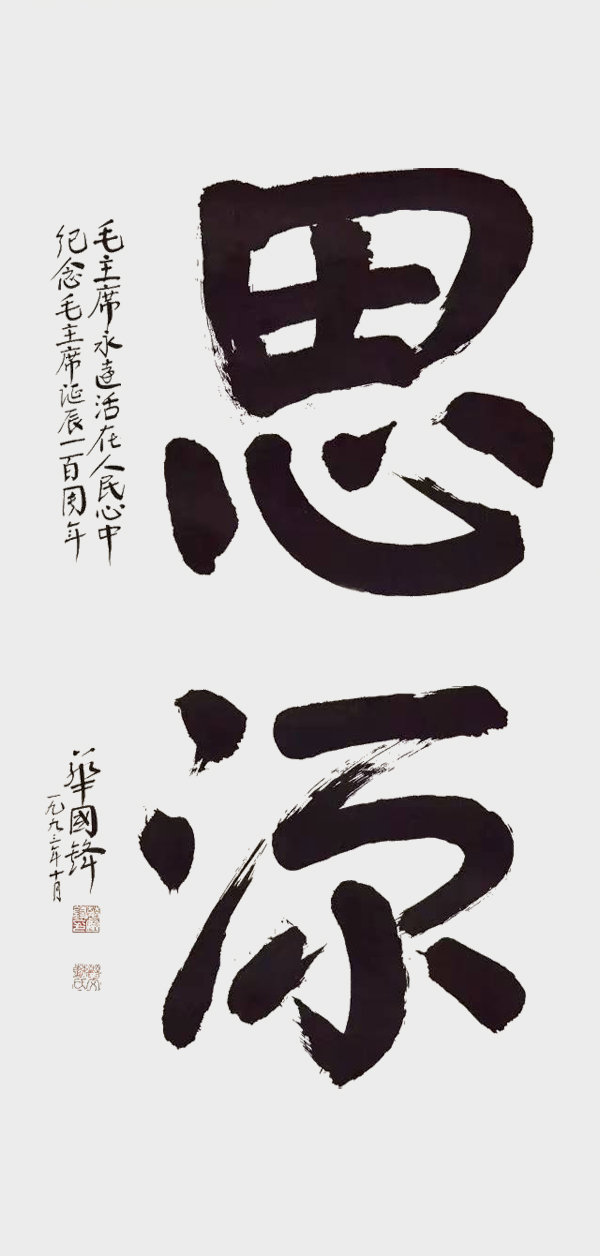 思源
毛主席永远活在人民心中
纪念毛主席诞辰一百周年
華國鋒
一九九三年十月